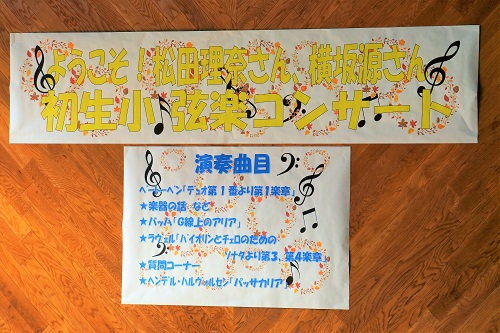 ようこそ！松田理奈さん、横坂源さん
初生小 弦楽コンサート
演奏曲目
ベートーベン「デュオ第1番より第1楽章」
★楽器の話 など
★バッハ「G線上のアリア」
★ラヴェル「バイオリンとチェロのための
ソナタより第3、第4楽章」
★質問コーナー
★ヘンデル・ハルヴォルセン「パッサカリア」